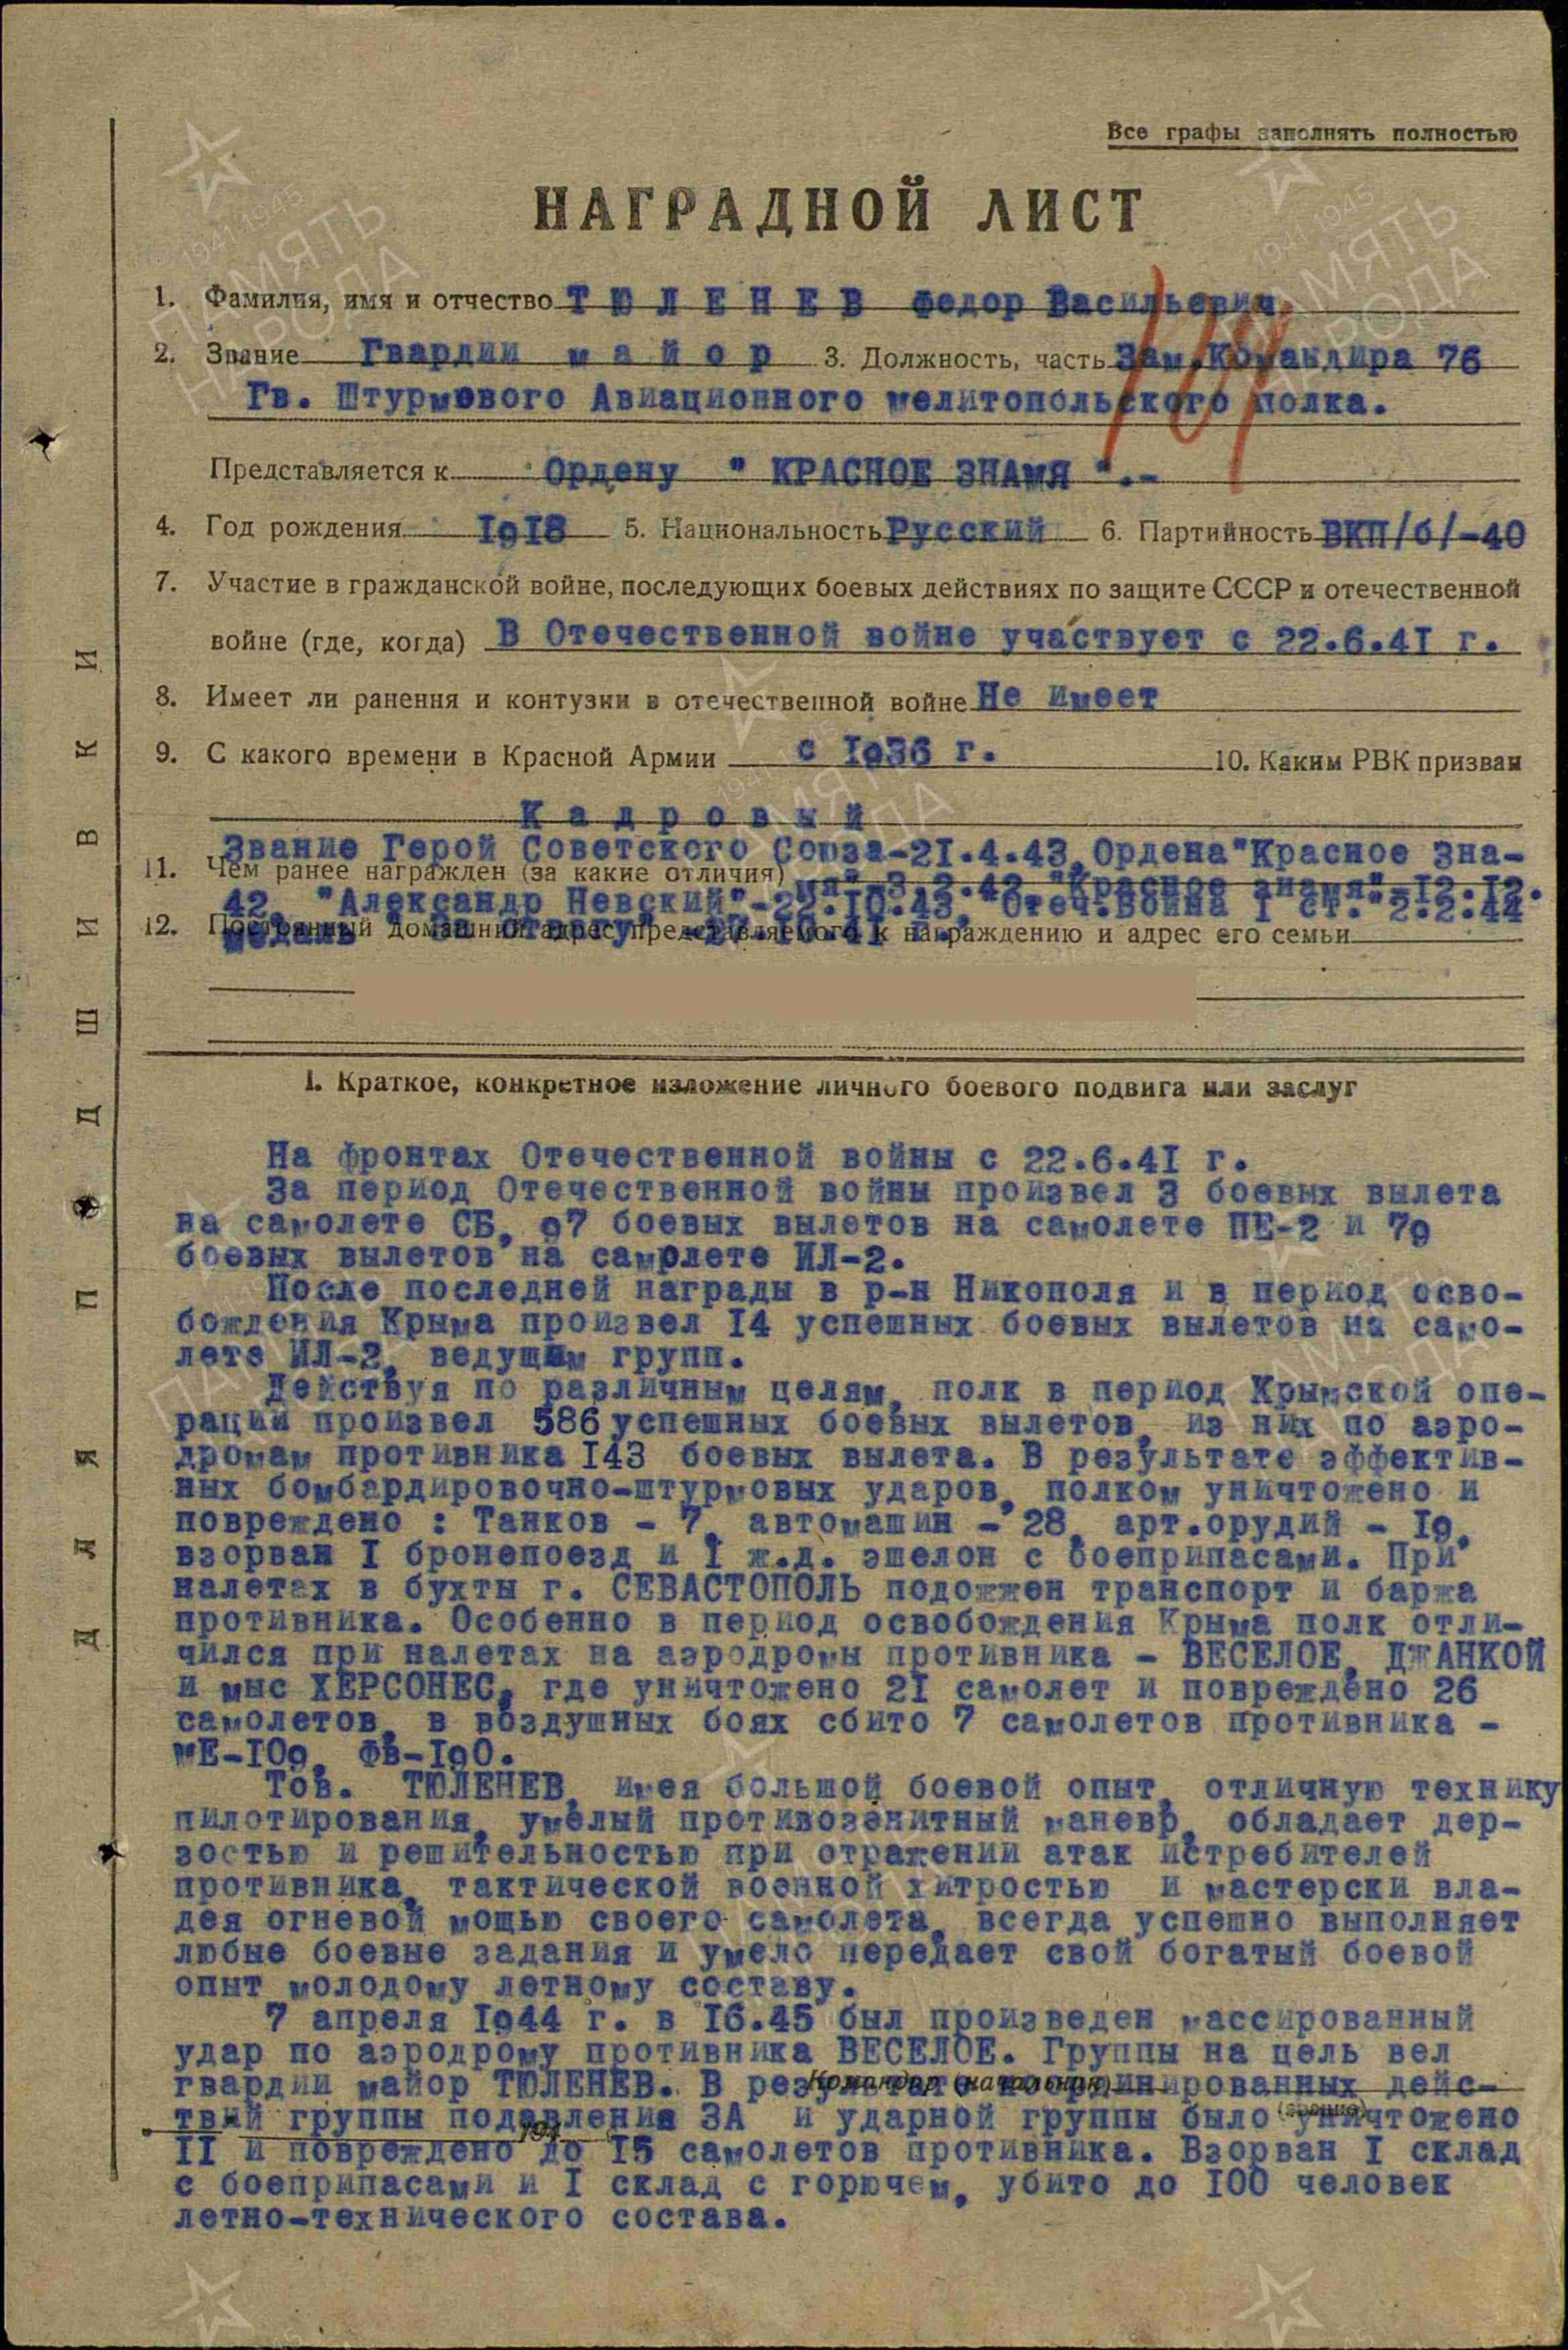 Все графы заполнять полностью
НАГРАДНОЙ ЛИСТ
1. Фамилия, имя и отчество Т Ю Л Е Н Е В Федор Васильевич.
2. Звание Гвардии м а й о р 3. Должность, часть Зам.Командира 76
Гв. Штурмового Авиационного мелитопольского полка.
Представляется к Ордену " КРАСНОЕ ЗНАМЯ ".-
4. Год рождения 1918 5. Национальность Русский 6. Партийность ВКП/б/-40
7. Участие в гражданской войне, последующих боевых действиях по защите СССР и отечественной
войне (где, когда) В Отечественной войне участвует с 22.6.41 г.
8. Имеет ли ранения и контузии в отечественной войне Не имеет
9. С какого времени в Красной Армии с 1936 г. 10. Каким РВК призван
К а д р о в ы й
Звание Герой Советского Союза-21.4.43, Ордена "Красное Зна-
11. Чем ранее награжден (за какие отличия) мя" "Красное знамя"-12.12.
42, "Александр Невский"-22.10.43, "Отеч.Война I ст." 2.2.44
12. Постоянный домашний адрес представляемого к награждению и адрес его семьи
медаль "За отвагу"
1. Краткое, конкретное изложение личного боевого подвига или заслуг
На фронтах Отечественной войны с 22.6.41 г.
За период Отечественной войны произвел 3 боевых вылета
на самолете СБ, 97 боевых вылетов на самолете ПЕ-2 и 79
боевых вылетов на самолете ИЛ-2.
После последней награды в р-н Никополя и в период осво-
бождения Крыма произвел 14 успешных боевых вылетов на само-
лете ИЛ-2, ведущим групп.
Действуя по различным целям, полк в период Крымской опе-
рации произвел 586 успешных боевых вылетов, из них по аэро-
дромам противника 143 боевых вылета. В результате эффектив-
ных бомбардировочно-штурмовых ударов, полком уничтожено и
повреждено : Танков - 7, автомашин - 28, арт.орудий - 19,
взорван I бронепоезд и I ж.д. эшелон с боеприпасами. При
налетах в бухты г. СЕВАСТОПОЛЬ подожжен транспорт и баржа
противника. Особенно в период освобождения Крыма полк отли-
чился при налетах на аэродромы противника - ВЕСЕЛОЕ, ДЖАНКОЙ
и мыс ХЕРСОНЕС, где уничтожено 21 самолет и повреждено 26
самолетов, в воздушных боях сбито 7 самолетов противника -
МЕ-109, ФВ-190.
Тов. ТЮЛЕНЕВ, имея большой боевой опыт, отличную технику
пилотирования, умелый противозенитный маневр, обладает дер-
зостью и решительностью при отражении атак истребителей
противника, тактической военной хитростью и мастерски вла-
дея огневой мощью своего самолета, всегда успешно выполняет
любые боевые задания и умело передает свой богатый боевой
опыт молодому летному составу.
7 апреля 1944 г. в 16.45 был произведен массированный
удар по аэродрому противника ВЕСЕЛОЕ. Группы на цель вел
гвардии майор ТЮЛЕНЕВ. В результате дейс-
Командир (начальник)
твий группы подавления ЗА и ударной группы было уничтожено
194
11 и повреждено до 15 самолетов противника. Взорван I склад
с боеприпасами и I склад с горючем, убито до 100 человек
летно-технического состава.
ДЛЯ ПОДШИВКИ
ПАМЯТЬ НАРОДА
1941-1945